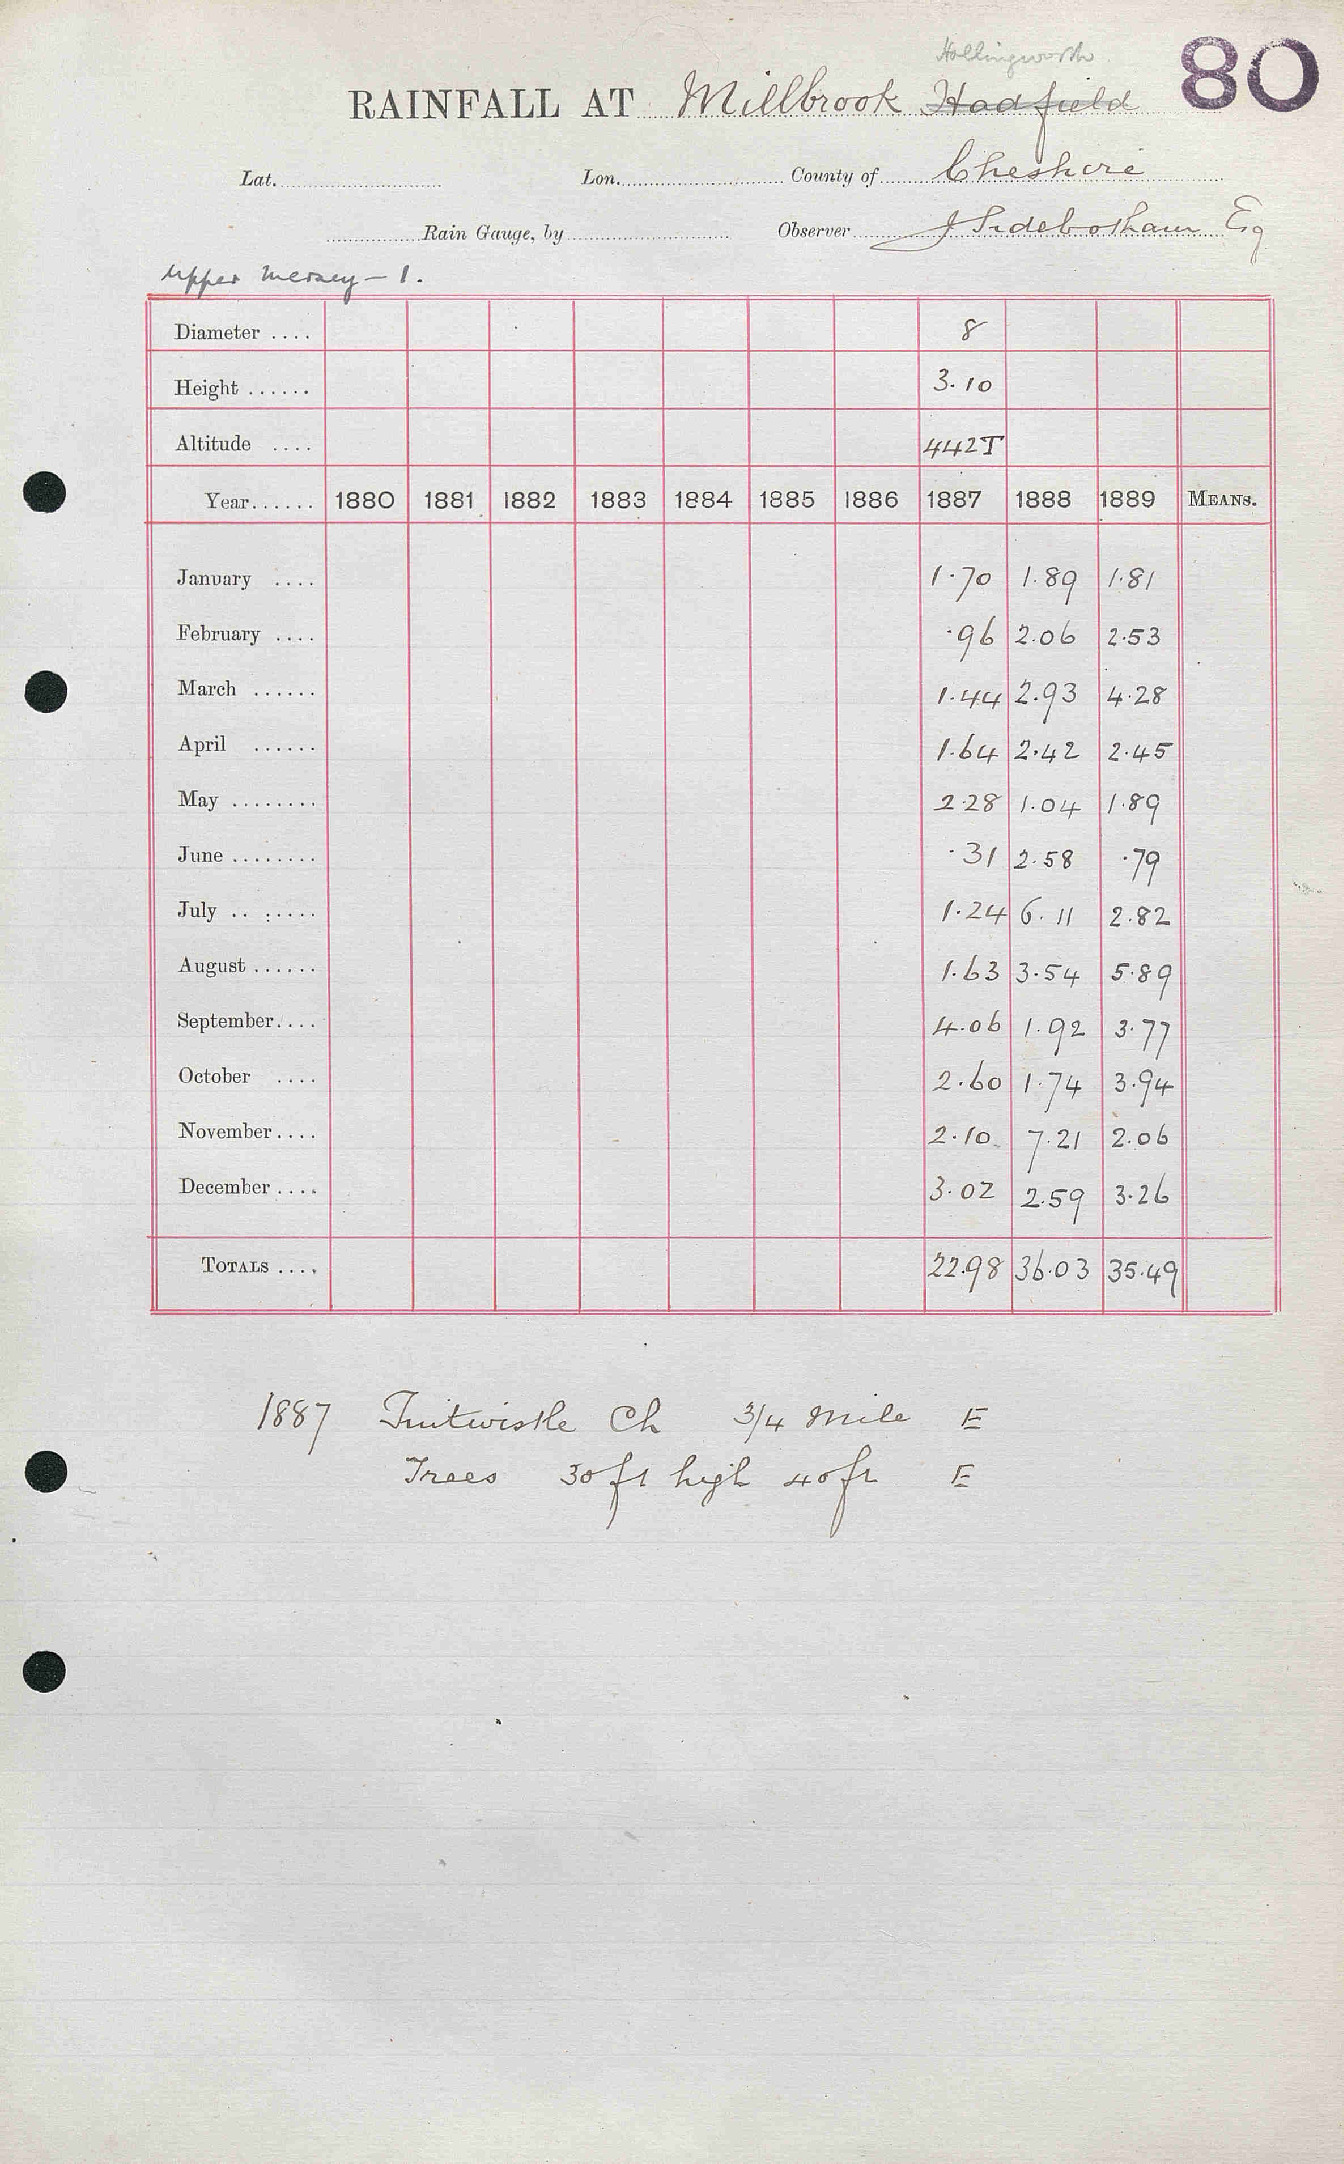 Hollingworth.
80
RAINFALL AT Millbrook Hadfield
Lat. Lon. County of Cheshire
Rain Gauge, by Observer J Sidebotham Esq
Upper Mersey - 1.
Diameter .... 8
Height ...... 3.10
Altitude .... 442T
Year...... 1880 1881 1882 1883 1884 1885 1886 1887 1888 1889 MEANS.
January .... 1.70 1.89 1.81
February .... .96 2.06 2.53
March ...... 1.44 2.93 4.28
April ...... 1.64 2.42 2.45
May ........ 2.28 1.04 1.89
June ........ .31 2.58 .79
July ........ 1.24 6.11 2.82
August ...... 1.63 3.54 5.89
September.... 4.06 1.92 3.77
October .... 2.60 1.74 3.94
November.... 2.10 7.21 2.06
December .... 3.02 2.59 3.26
TOTALS .... 22.98 36.03 35.49
1887 Tintwistle Ch 3/4 Mile E
Trees 30ft high 40ft E